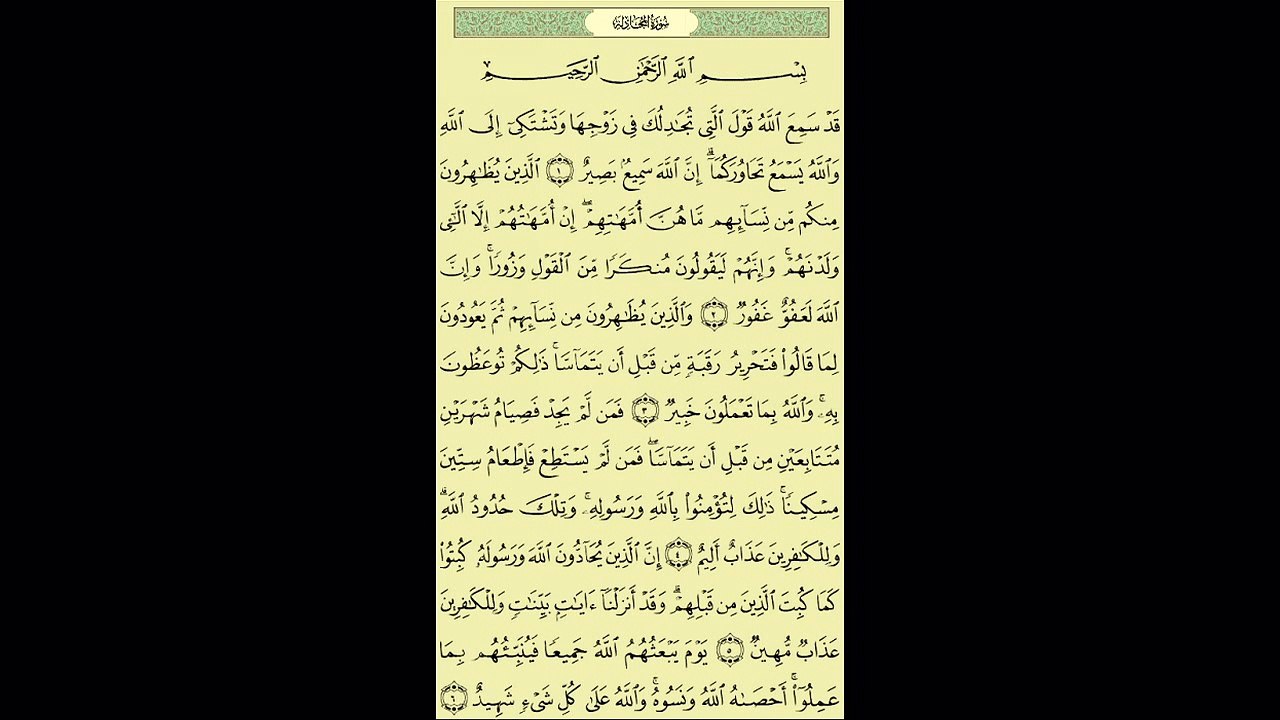 سُورَةُ المُجَادلة
بِسْمِ ٱللَّهِ ٱلرَّحْمَٰنِ ٱلرَّحِيمِ
قَدْ سَمِعَ ٱللَّهُ قَوْلَ ٱلَّتِى تُجَٰدِلُكَ فِى زَوْجِهَا وَتَشْتَكِىٓ إِلَى ٱللَّهِ
وَٱللَّهُ يَسْمَعُ تَحَاوُرَكُمَآ ۚ إِنَّ ٱللَّهَ سَمِيعٌۢ بَصِيرٌ ١ ٱلَّذِينَ يُظَٰهِرُونَ
مِنكُم مِّن نِّسَآئِهِم مَّا هُنَّ أُمَّهَٰتِهِمْ ۖ إِنْ أُمَّهَٰتُهُمْ إِلَّا ٱلَّٰٓـِٔى
وَلَدْنَهُمْ ۚ وَإِنَّهُمْ لَيَقُولُونَ مُنكَرًا مِّنَ ٱلْقَوْلِ وَزُورًا ۚ وَإِنَّ
ٱللَّهَ لَعَفُوٌّ غَفُورٌ ٢ وَٱلَّذِينَ يُظَٰهِرُونَ مِن نِّسَآئِهِمْ ثُمَّ يَعُودُونَ
لِمَا قَالُوا۟ فَتَحْرِيرُ رَقَبَةٍ مِّن قَبْلِ أَن يَتَمَآسَّا ۚ ذَٰلِكُمْ تُوعَظُونَ
بِهِۦ ۚ وَٱللَّهُ بِمَا تَعْمَلُونَ خَبِيرٌ ٣ فَمَن لَّمْ يَجِدْ فَصِيَامُ شَهْرَيْنِ
مُتَتَابِعَيْنِ مِن قَبْلِ أَن يَتَمَآسَّا ۖ فَمَن لَّمْ يَسْتَطِعْ فَإِطْعَامُ سِتِّينَ
مِسْكِينًا ۚ ذَٰلِكَ لِتُؤْمِنُوا۟ بِٱللَّهِ وَرَسُولِهِۦ ۚ وَتِلْكَ حُدُودُ ٱللَّهِ ۗ
وَلِلْكَٰفِرِينَ عَذَابٌ أَلِيمٌ ٤ إِنَّ ٱلَّذِينَ يُحَآدُّونَ ٱللَّهَ وَرَسُولَهُۥ كُبِتُوا۟
كَمَا كُبِتَ ٱلَّذِينَ مِن قَبْلِهِمْ ۚ وَقَدْ أَنزَلْنَآ ءَايَٰتٍۭ بَيِّنَٰتٍ ۚ وَلِلْكَٰفِرِينَ
عَذَابٌ مُّهِينٌ ٥ يَوْمَ يَبْعَثُهُمُ ٱللَّهُ جَمِيعًا فَيُنَبِّئُهُم بِمَا
عَمِلُوٓا۟ ۚ أَحْصَىٰهُ ٱللَّهُ وَنَسُوهُ ۚ وَٱللَّهُ عَلَىٰ كُلِّ شَىْءٍ شَهِيدٌ ٦